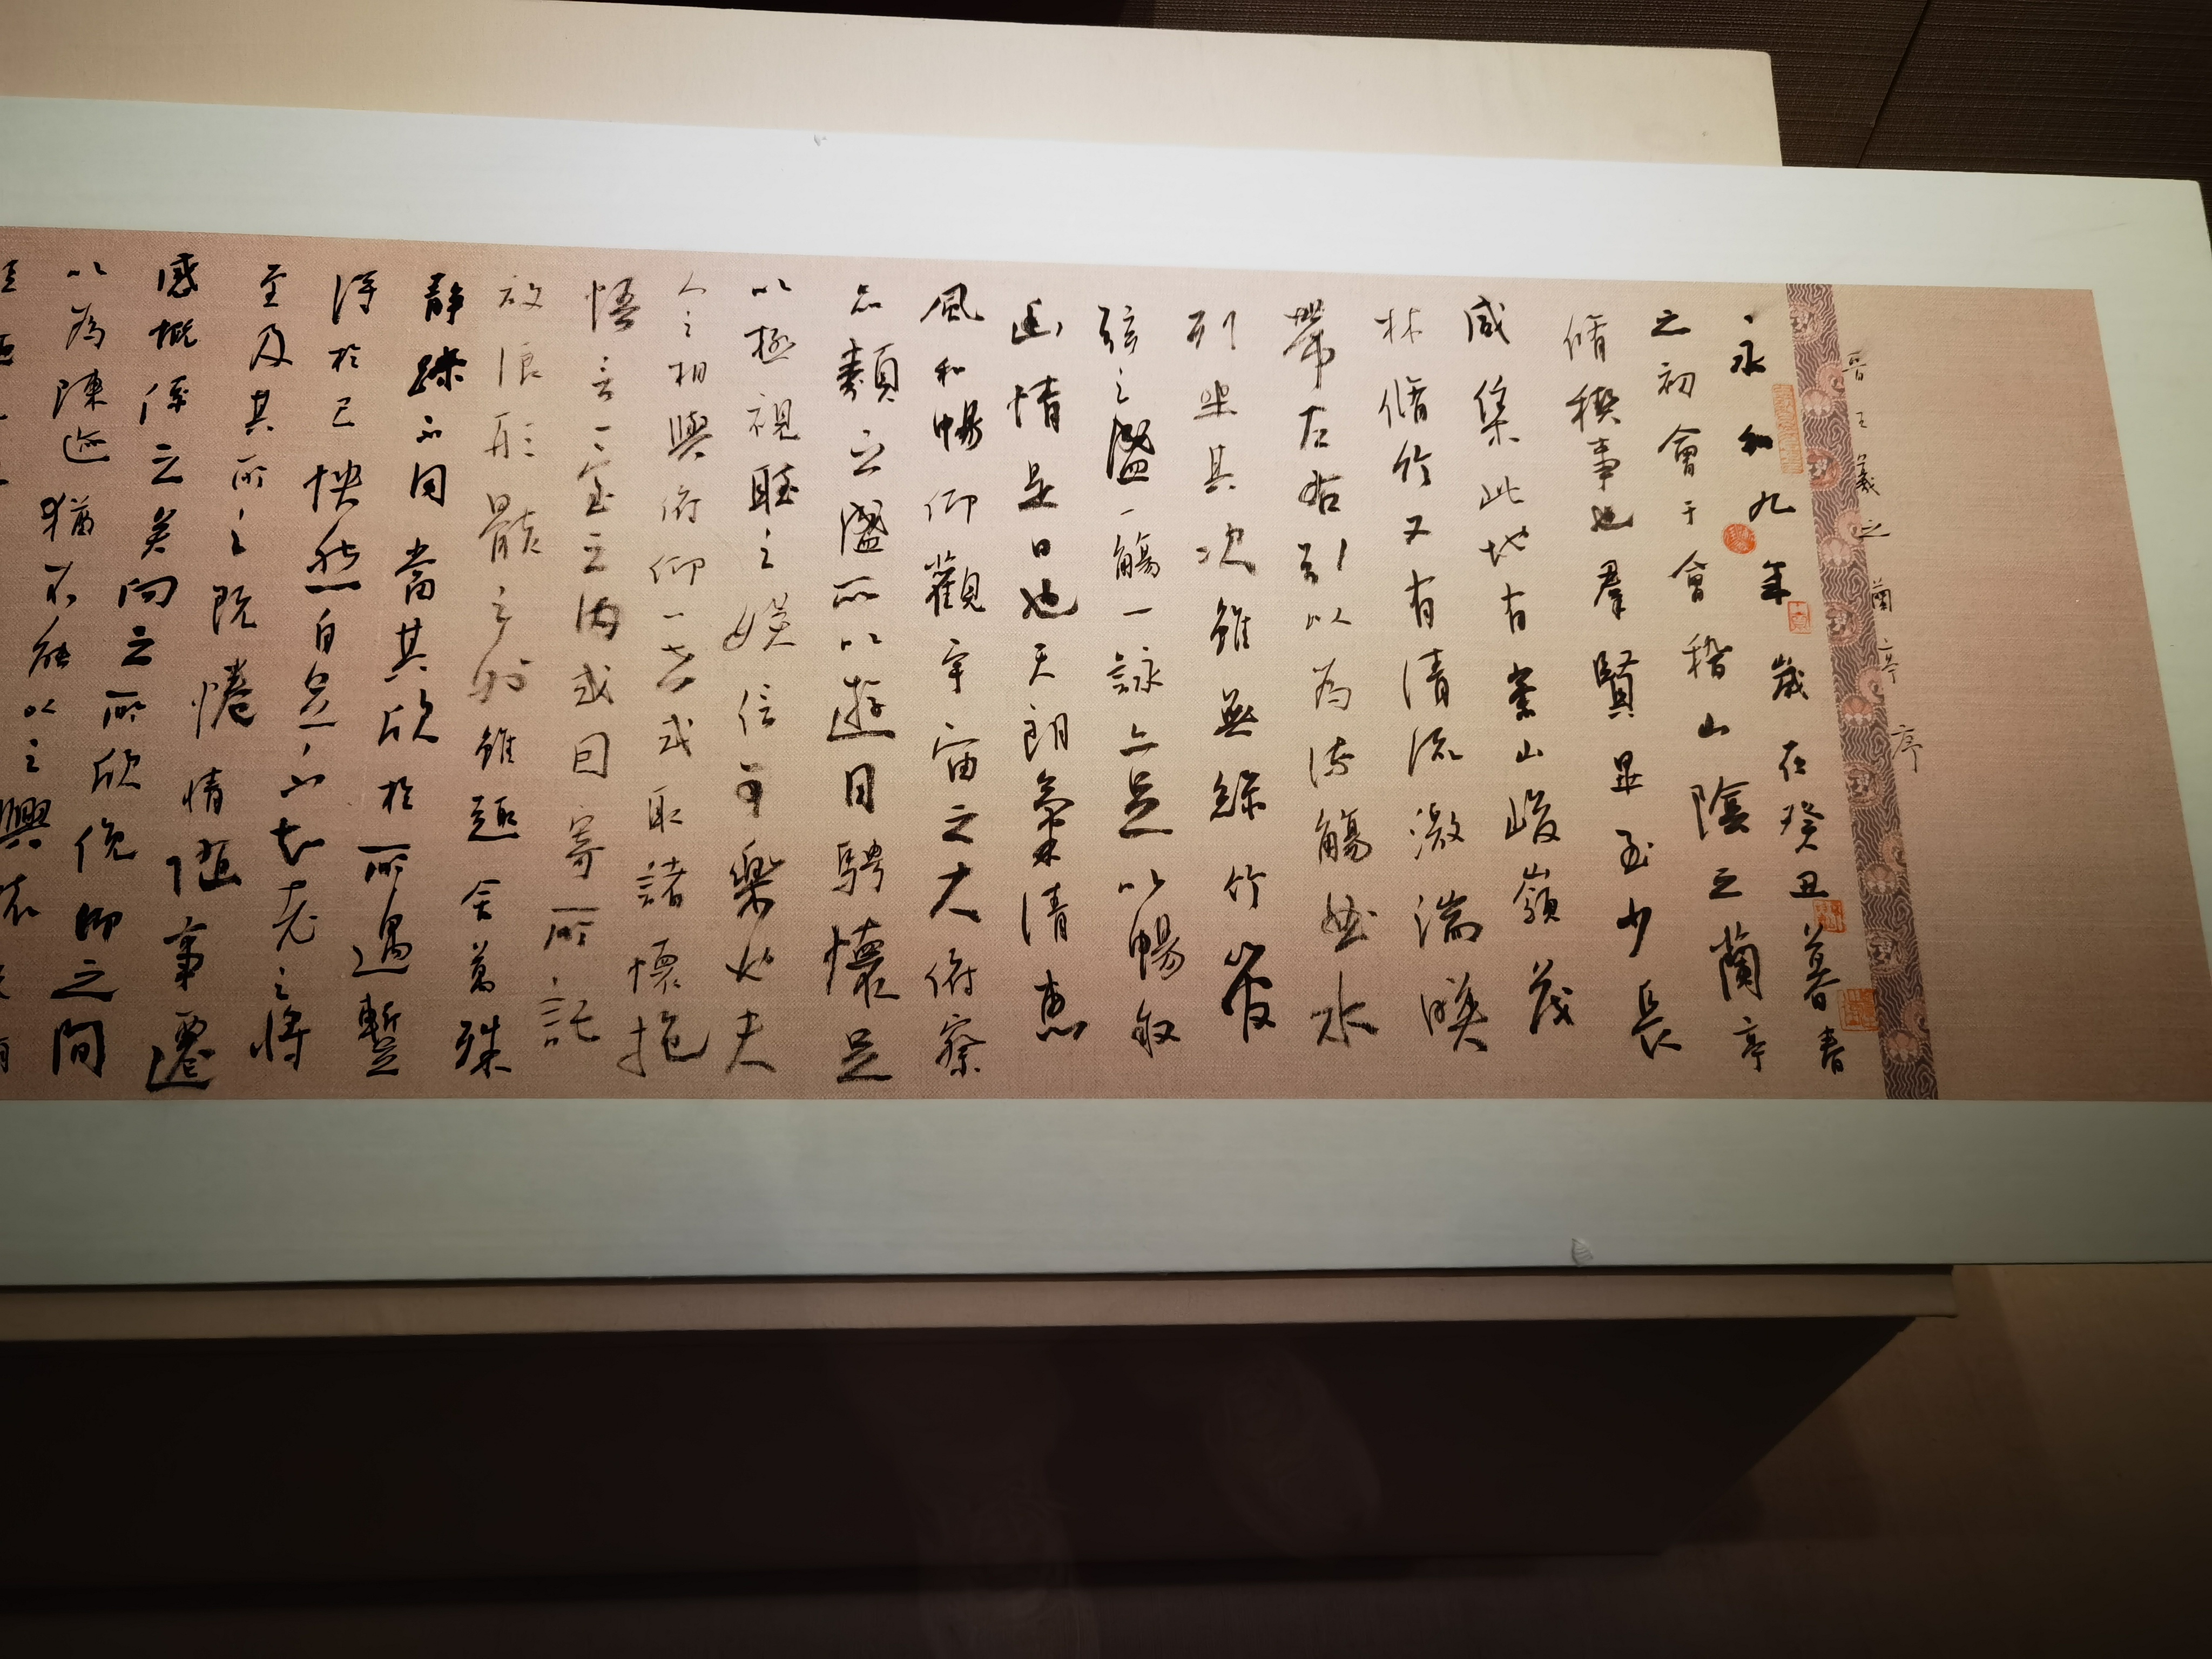 晉王羲之蘭亭序
永和九年歲在癸丑暮春
之初會于會稽山陰之蘭亭
脩稧事也羣賢畢至少長
咸集此地有崇山峻嶺茂
林脩竹又有清流激湍暎
帶左右引以為流觴曲水
列坐其次雖無絲竹管
弦之盛一觴一詠亦足以暢敘
幽情是日也天朗氣清惠
風和暢仰觀宇宙之大俯察
品類之盛所以遊目騁懷足
以極視聽之娛信可樂也夫
人之相與俯仰一世或取諸懷抱
悟言一室之內或因寄所託
放浪形骸之外雖趣舍萬殊
靜躁不同當其欣於所遇暫
得於己怏然自足不知老之將
至及其所之既惓情隨事遷
感慨係之矣向之所欣俛仰之間
以為陳迹猶不能不
以之興懷